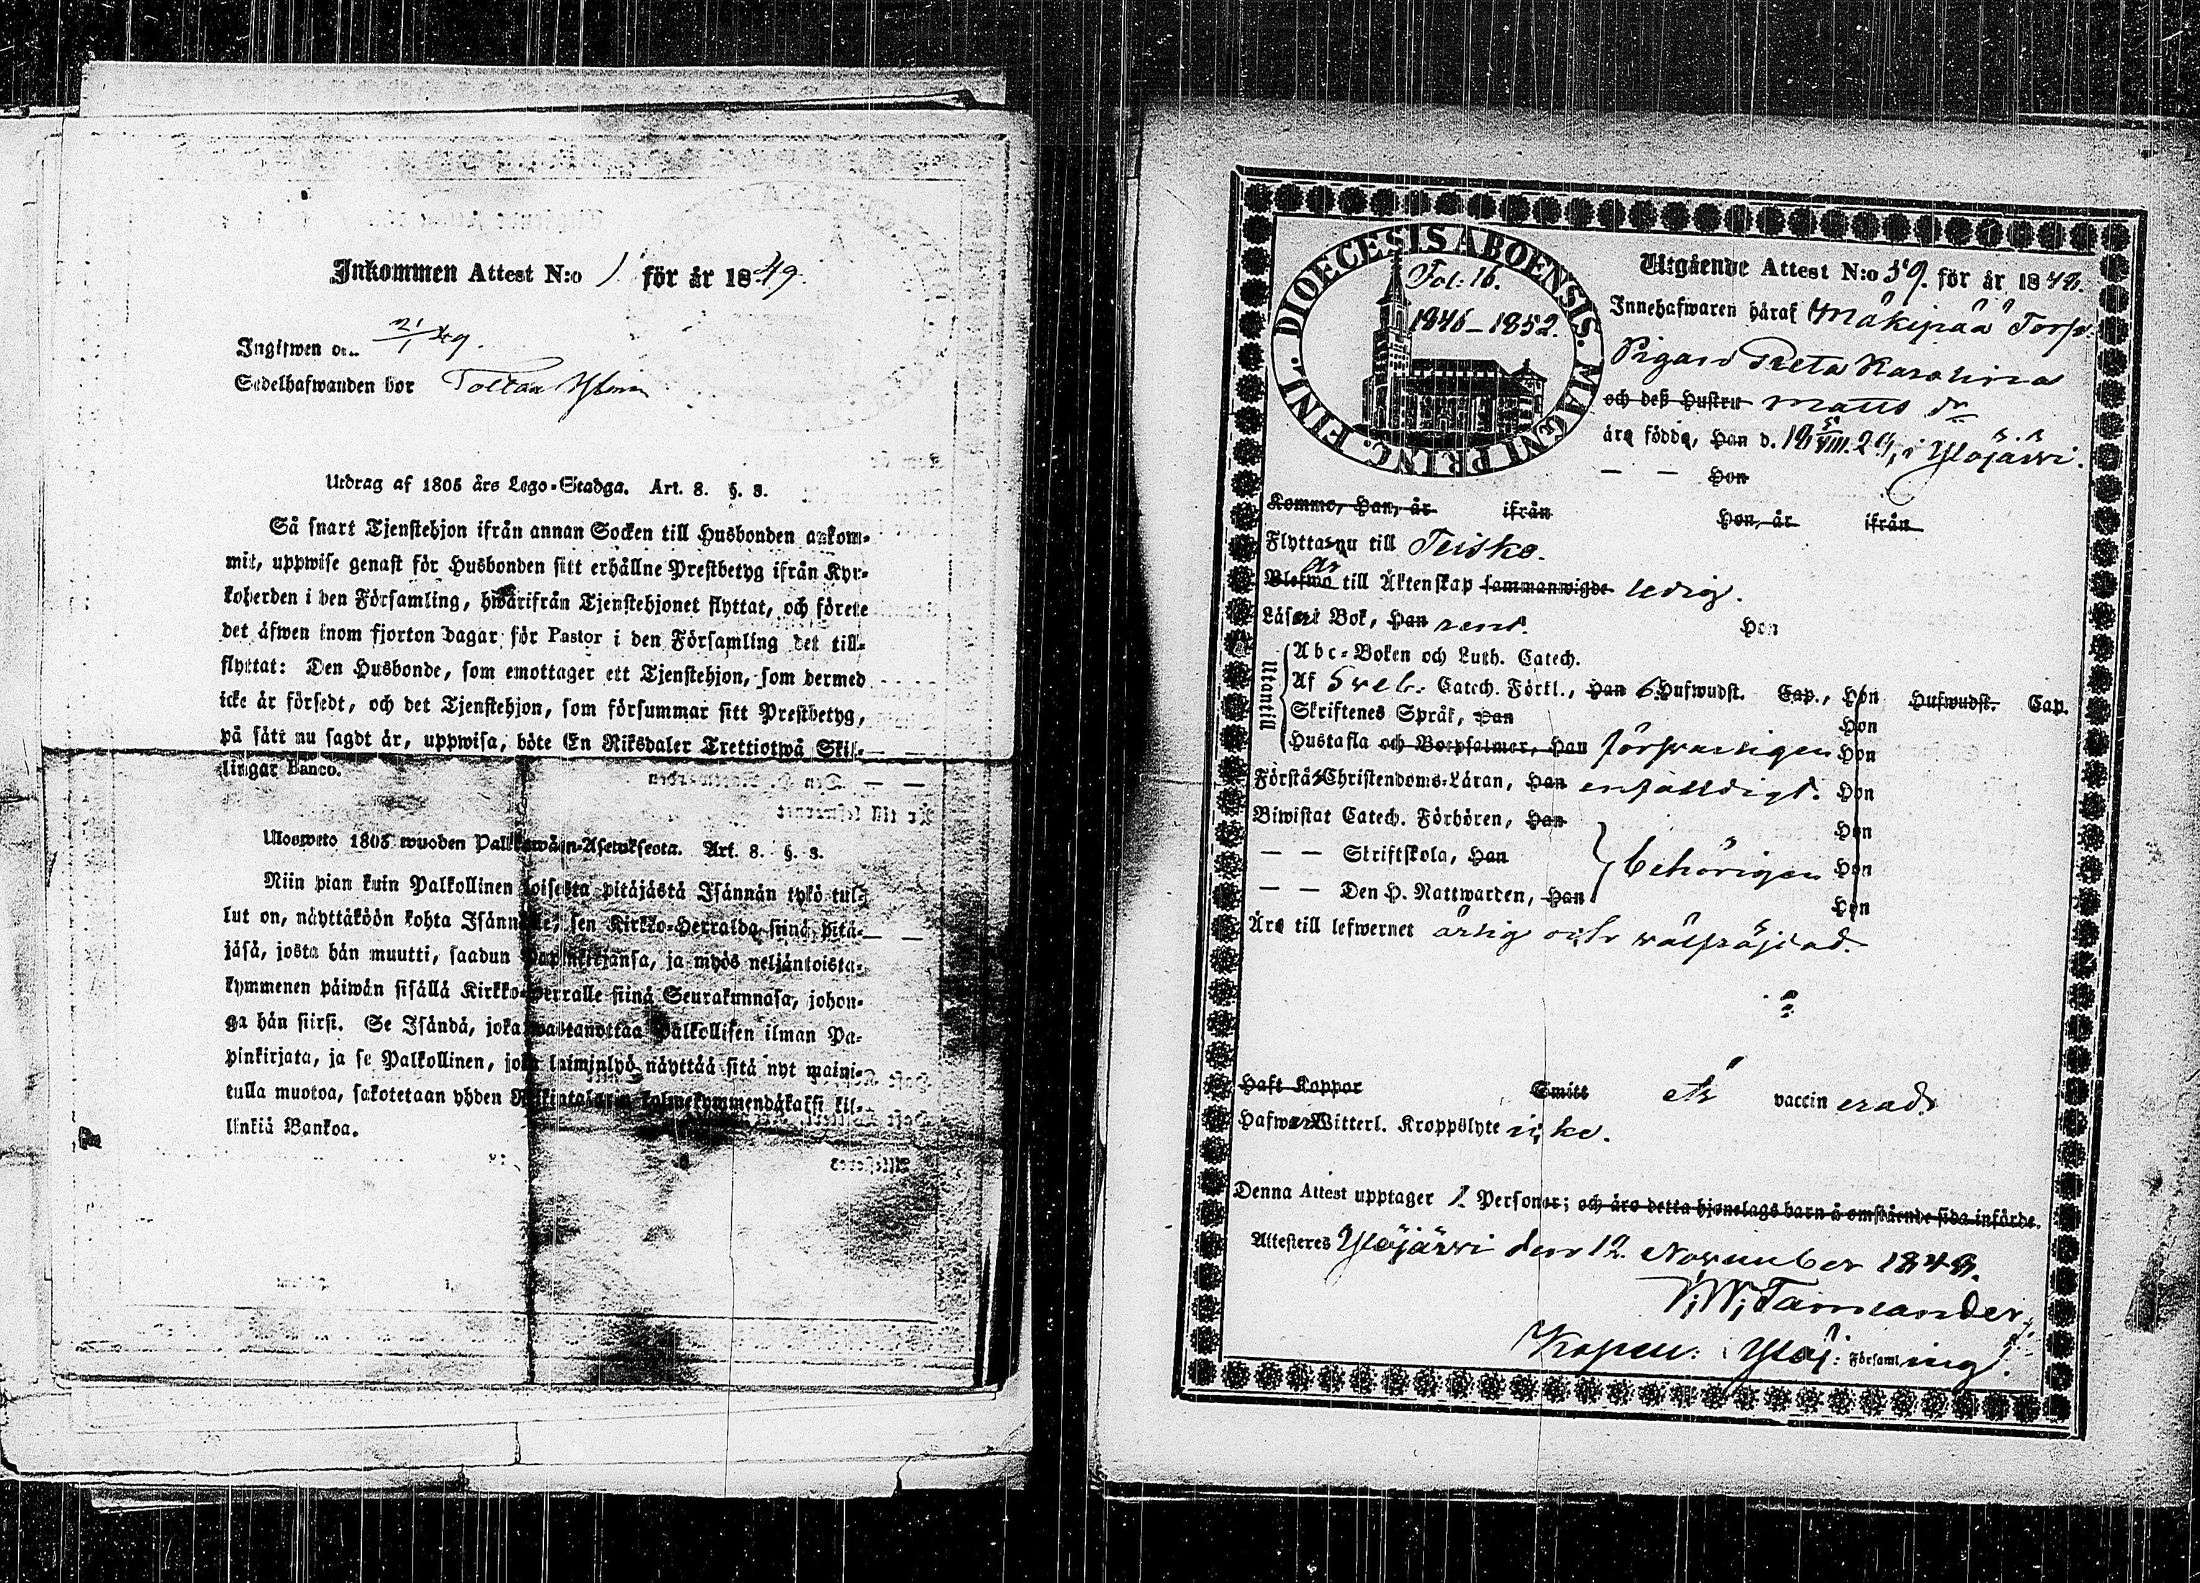 Inkommen Attest N:o 1 för år 1849.
Ingifwen den 2/1 49.
Sedelhafwanden bor
Utdrag af 1805 års Lego-Stadga. Art. 8. §. 3.
Så snart Tjenstehjon ifrån annan Socken till Husbonden ankom-
mit, uppwise genast för Husbonden sitt erhållne Prestbetyg ifrån Kyr-
koherden i den Församling, hwarifrån Tjenstehjonet flyttat, och förete
det äfwen inom fjorton dagar för Pastor i den Församling det till-
flyttat: Den Husbonde, som emottager ett Tjenstehjon, som dermed
icke är försedt, och det Tjenstehjon, som försummar sitt Prestbetyg,
på sätt nu sagdt är, uppwisa, böte En Riksdaler Trettiotwå Skil-
lingar Banco.
Ulosweto 1805 wuoden Palkkawäen-Asetuksesta. Art. 8. §. 3.
Niin pian kuin Palkollinen toisesta pitäjästä Isännän tykö tul-
lut on, näyttäköön kohta Isännälle, sen Kirkko-Herralda siinä pitä-
jäsä, josta hän muutti, saadun Papinkirjansa, ja myös neljäntoista-
kymmenen päiwän sisällä Kirkko-Herralle siinä Seurakunnasa, johon-
ga hän siirsi. Se Isändä, joka wastanottaa Palkollisen ilman Pa-
pinkirjata, ja se Palkollinen, joka laiminlyö näyttää sitä nyt maini-
tulla muotoa, sakotetaan yhden Riikintalarin kolmekymmendäkaksi kil-
linkiä Bankoa.
DIOECESIS ABOENSIS. MAGNI PRINC. FINL.
Fol: 16.
1846-1852.
Utgående Attest N:o 59. för år 1848.
Innehafwaren häraf Mäkipää Torp.
Pigan Greta Karolina
och deß Hustru Matts dr
äro födde, Han d. 18 5/VIII. 29, i Ylöjärwi.
— — Hon
Komme, Han, år ifrån Hon, år ifrån
Flyttar nu till Teisko.
Blefwo är till Äktenskap sammanwigde ledig.
Läser i Bok, Han rent. Hon
Utantill
Abc-Boken och Luth. Catech.
Af Sveb. Catech. Förkl., Han 6 Hufwudst. Cap., Hon Hufwudst. Cap.
Skriftenes Språk, Han Hon
Hustafla och Botpsalmer, Han försvarligen Hon
Förstår Christendoms-Läran, Han enfaldigt. Hon
Biwistat Catech. Förhören, Han Hon
— — Skriftskola, Han behörigen Hon
— — Den H. Nattwarden, Han Hon
Äro till lefwernet ärlig och wälfräjdad.
Haft Koppor Smitt är vaccinerad
Hafwer Witterl. Kroppslyte icke.
Denna Attest upptager 1 Personer; och äro detta hjonelags barn å omstående sida införde.
Attesteras Ylöjärwi den 12 November 1848.
W. Tamlander,
Kapell: i Ylöj: Församling.